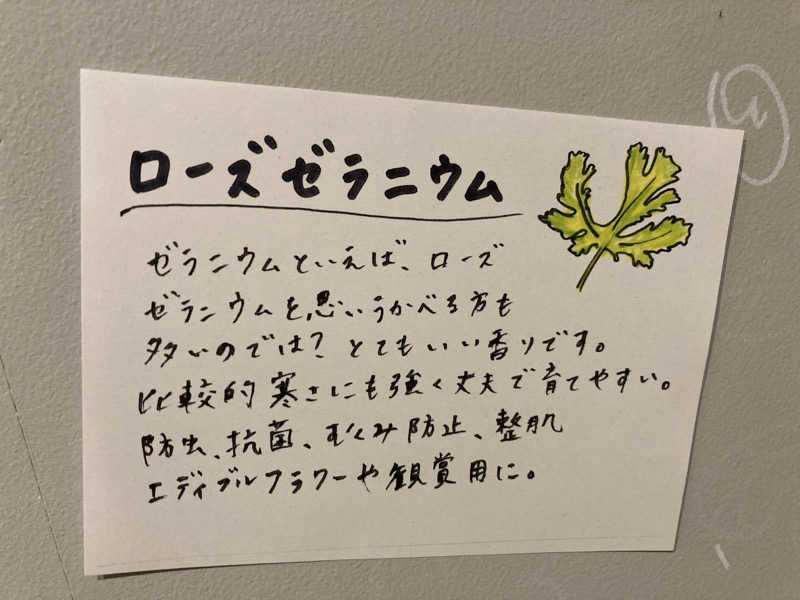 ローズゼラニウム
ゼラニウムといえば、ローズ
ゼラニウムを思いうかべる方も
多いのでは？とてもいい香りです。
比較的寒さにも強く丈夫で育てやすい。
防虫、抗菌、むくみ防止、整肌
エディブルフラワーや観賞用に。